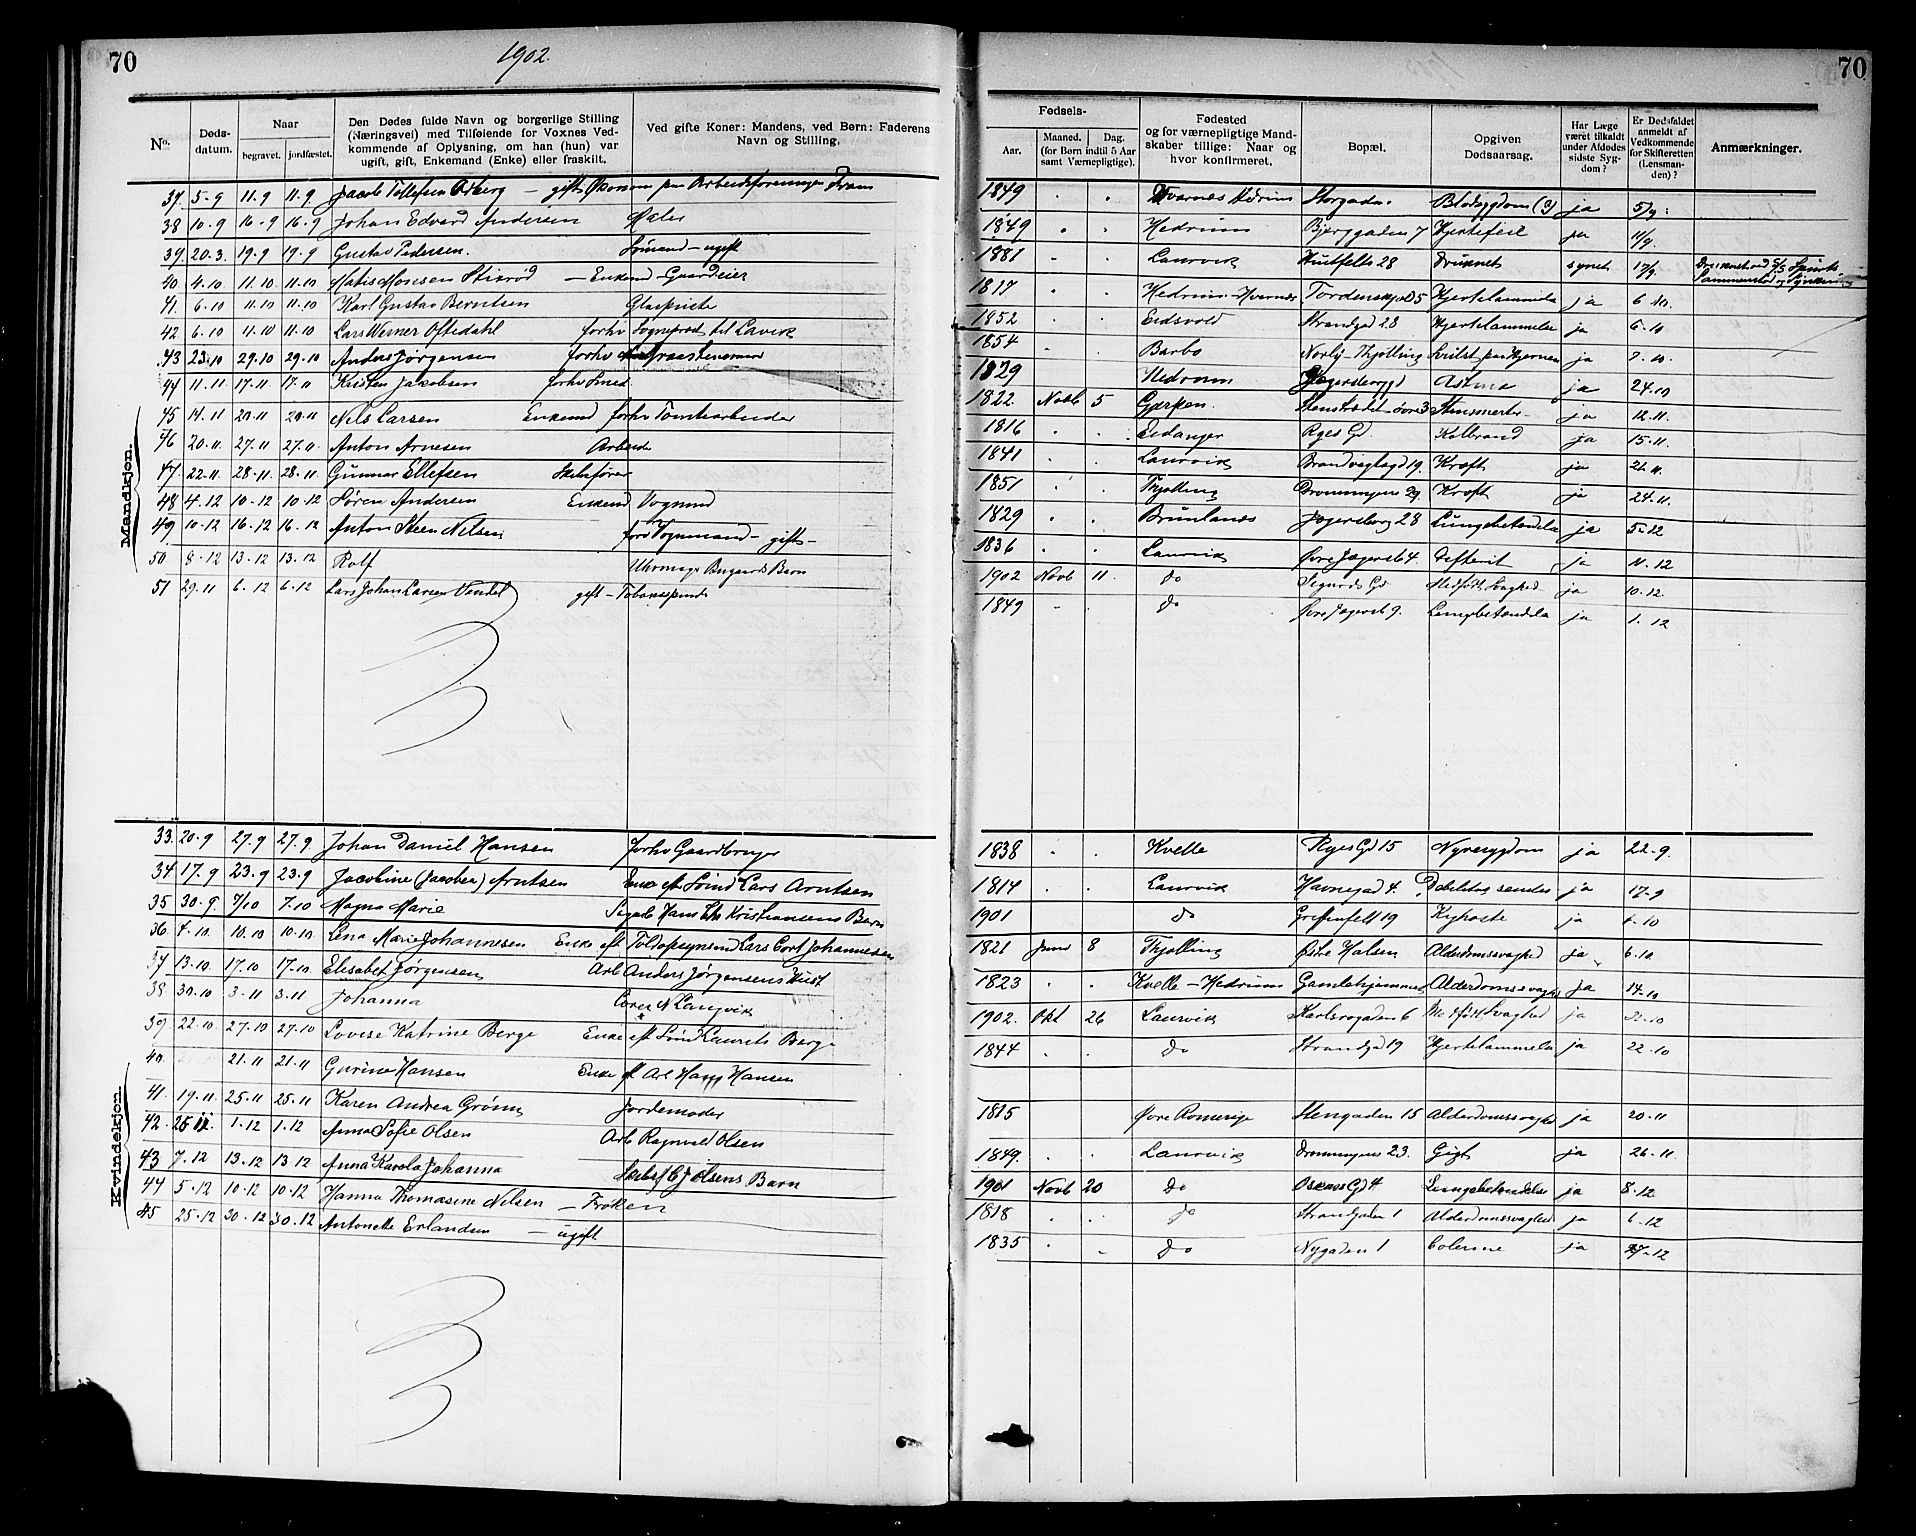 70
1902.
70
No.
Døds-datum.
Naar
begravet.
jordfæstet.
Den Dødes fulde Navn og borgerlige Stilling (Næringsvei) med Tilføiende for Voxnes Vedkommende af Oplysning, om han (hun) var ugift, gift, Enkemand (Enke) eller fraskilt.
Ved gifte Koner: Mandens, ved Børn: Faderens Navn og Stilling.
Fødsels-
Aar.
Maaned.
Dag.
(for Børn indtil 5 Aar samt Værnepligtige).
Fødested og for værnepligtige Mandskaber tillige: Naar og hvor konfirmeret.
Bopæl.
Opgiven Dødsaarsag.
Har Læge været tilkaldt under Afdødes sidste Sygdom?
Er Dødsfaldet anmeldt af Vedkommende for Skifteretten (Lensmanden)?
Anmærkninger.
Mandkjøn.
37. 5-9 11.9 11.9 Jacob Tollefsen Odberg — gift Økonom paa Arbeiderforeningen Fram 1849 Hvarnes Hedrum Storgaden Blodsygdom (?) ja 5/9
38 10-9 16-9 16.9 Johan Edvard Andersen Mæler 1849 Hedrum Bjerggaden 7 Hjertefeil ja 11/9
39. 20-3. 19.9 19.9 Gustav Pedersen. Sømand — ugift 1881 Laurvik Huitfelts 28 Druknet synet 17/9
40 4.10 11.10 11.10 Matis Monsen Stixrød — Enkemd — Gaardeier 1817 Hedrum - Hvarnes Tordenskjold 5 Hjertelammelse ja 6.10
41 6.10 11.10 11.10 Karl Gustav Berntsen Glaspuster 1852 Eidsvold Strandgd 28 Hjertelammelse ja 6-10
42 6.10 11.10 11.10 Lars Werner Oftedahl forhv Sogneprest til Lavik 1854 Barbo Norby - Thjølling ja 7.10
43 23.10 29.10 29.10 Anders Jørgensen forhv 1829 Hedrum Jægersborggd Astma ja 24.10
44 11.11 17.11 17.11 Kristen Jakobsen forhv Smed 1822 Novb 5 Gjerpen Stenstrædet øvre 3 ja 12.11.
45 14.11 20.11 20.11 Nils Larsen Enkemd forhv Tomtearbeider 1816 Eidanger Ryes Gd. Kolbrand ja 15-11.
46 20.11 27.11 27.11 Anton Arnesen Arbeider 1841 Laurvik Brandvagtsgd 19. Kræft ja 21.11.
47. 22.11. 28.11. 28.11. Gunnar Ellefsen Skibsfører 1851 Thjølling Dronningens 29. Kræft ja 24.11.
48 4.12 10-12 10.12 Søren Andersen Enkemd Vognmd 1829 Brunlanæs Jægersborg 28 Lungebetændelse ja 5-12
49 10-12 16.12 16.12 Anton Steen Nilsen forv Vognmand — gift — 1836 Laurvik Øvre Jægersb 4. Difterit ja 11.12
50 8-12 13-12 13.12 Rolf Uhrmager Bugaards Barn 1902 Novb 11. do Sigurds Gd Medfødt Svaghed ja 10.12.
51 29.11 6.12 6.12 Lars Johan Larsen Vendel gift — Tobaksspinder 1849 do Øvre Jægersb 9. Lungebetændelse ja 1.12
Kvindekjøn.
33. 20-9 27.9 27.9. Johan Daniel Hansen forhv Gaardbruger 1838 Kvelle Ryes Gd 15 Nyresygdom ja 22-9.
34 17.9 23.9 23.9 Jacobine (Jacobea) Arntsen Enke eft Sømd Lars Arntsen 1814 Laurvik Havnegad 4. ja 17-9
35 30-9. 7/10 7.10 Magna Marie Kristiansens Barn 1901 do Griffenfelt 19 Kighoste ja 1-10
36. 4.10 10.10 10.10 Lena Marie Johannesen Enke eft Toldopsynsmd Lars Cort Johannesen 1821 Juni 8 Thjølling Østre Halsen Alderdomssvaghed ja 6.10
37 13.10 17.10 17.10 Elisabet Jørgensen Arb Anders Jørgensens Hust 1823 Kvelle — Hedrum Gamlehjemmet Alderdomssvaghed ja 14-10
38 30.10 3.11 3.11 Johanna N Langvik 1902. Okt 26 Laurvik Karlsrogaden 6 Medfødt Svaghed ja 31-10
39 22.10 27.10 27.10 Lovise Katrine Berge Enke eft Sømd Laurits Berge 1844 do Strandgd 19 Hjertelammelse ja 22.10
40. 21.11 21.11 Gurine Hansen Enke eft Arb Hans Hansen
41. 19.11. 25.11 25.11 Karen Andrea Grønn Jordemoder 1815 Øvre Romerige Stengaden 15 Alderdomssvaghed ja 20.11
42. 25.11. 1.12 1.12 Anna Sofie Olsen Arb Ragnvald Olsen 1849. Laurvik Dronningens 23. Gigt ja 26.11.
43 7.12 13.12 13.12 Anna Karola Johanna Skibsf C J Olsens Barn 1901 Novb 20 do Oscars Gd 4 Lungebetændelse ja 8.12
44 5.12 10.12 10.12 Hanna Thomasine Nilsen — Frøken 1818 do Strandgaden 1 Alderdomssvaghed ja 6.12
45 25.12 30.12 30.12 Antonette Erlandsen — ugift 1835 do Nygaden 1 Colerine ja 27-12